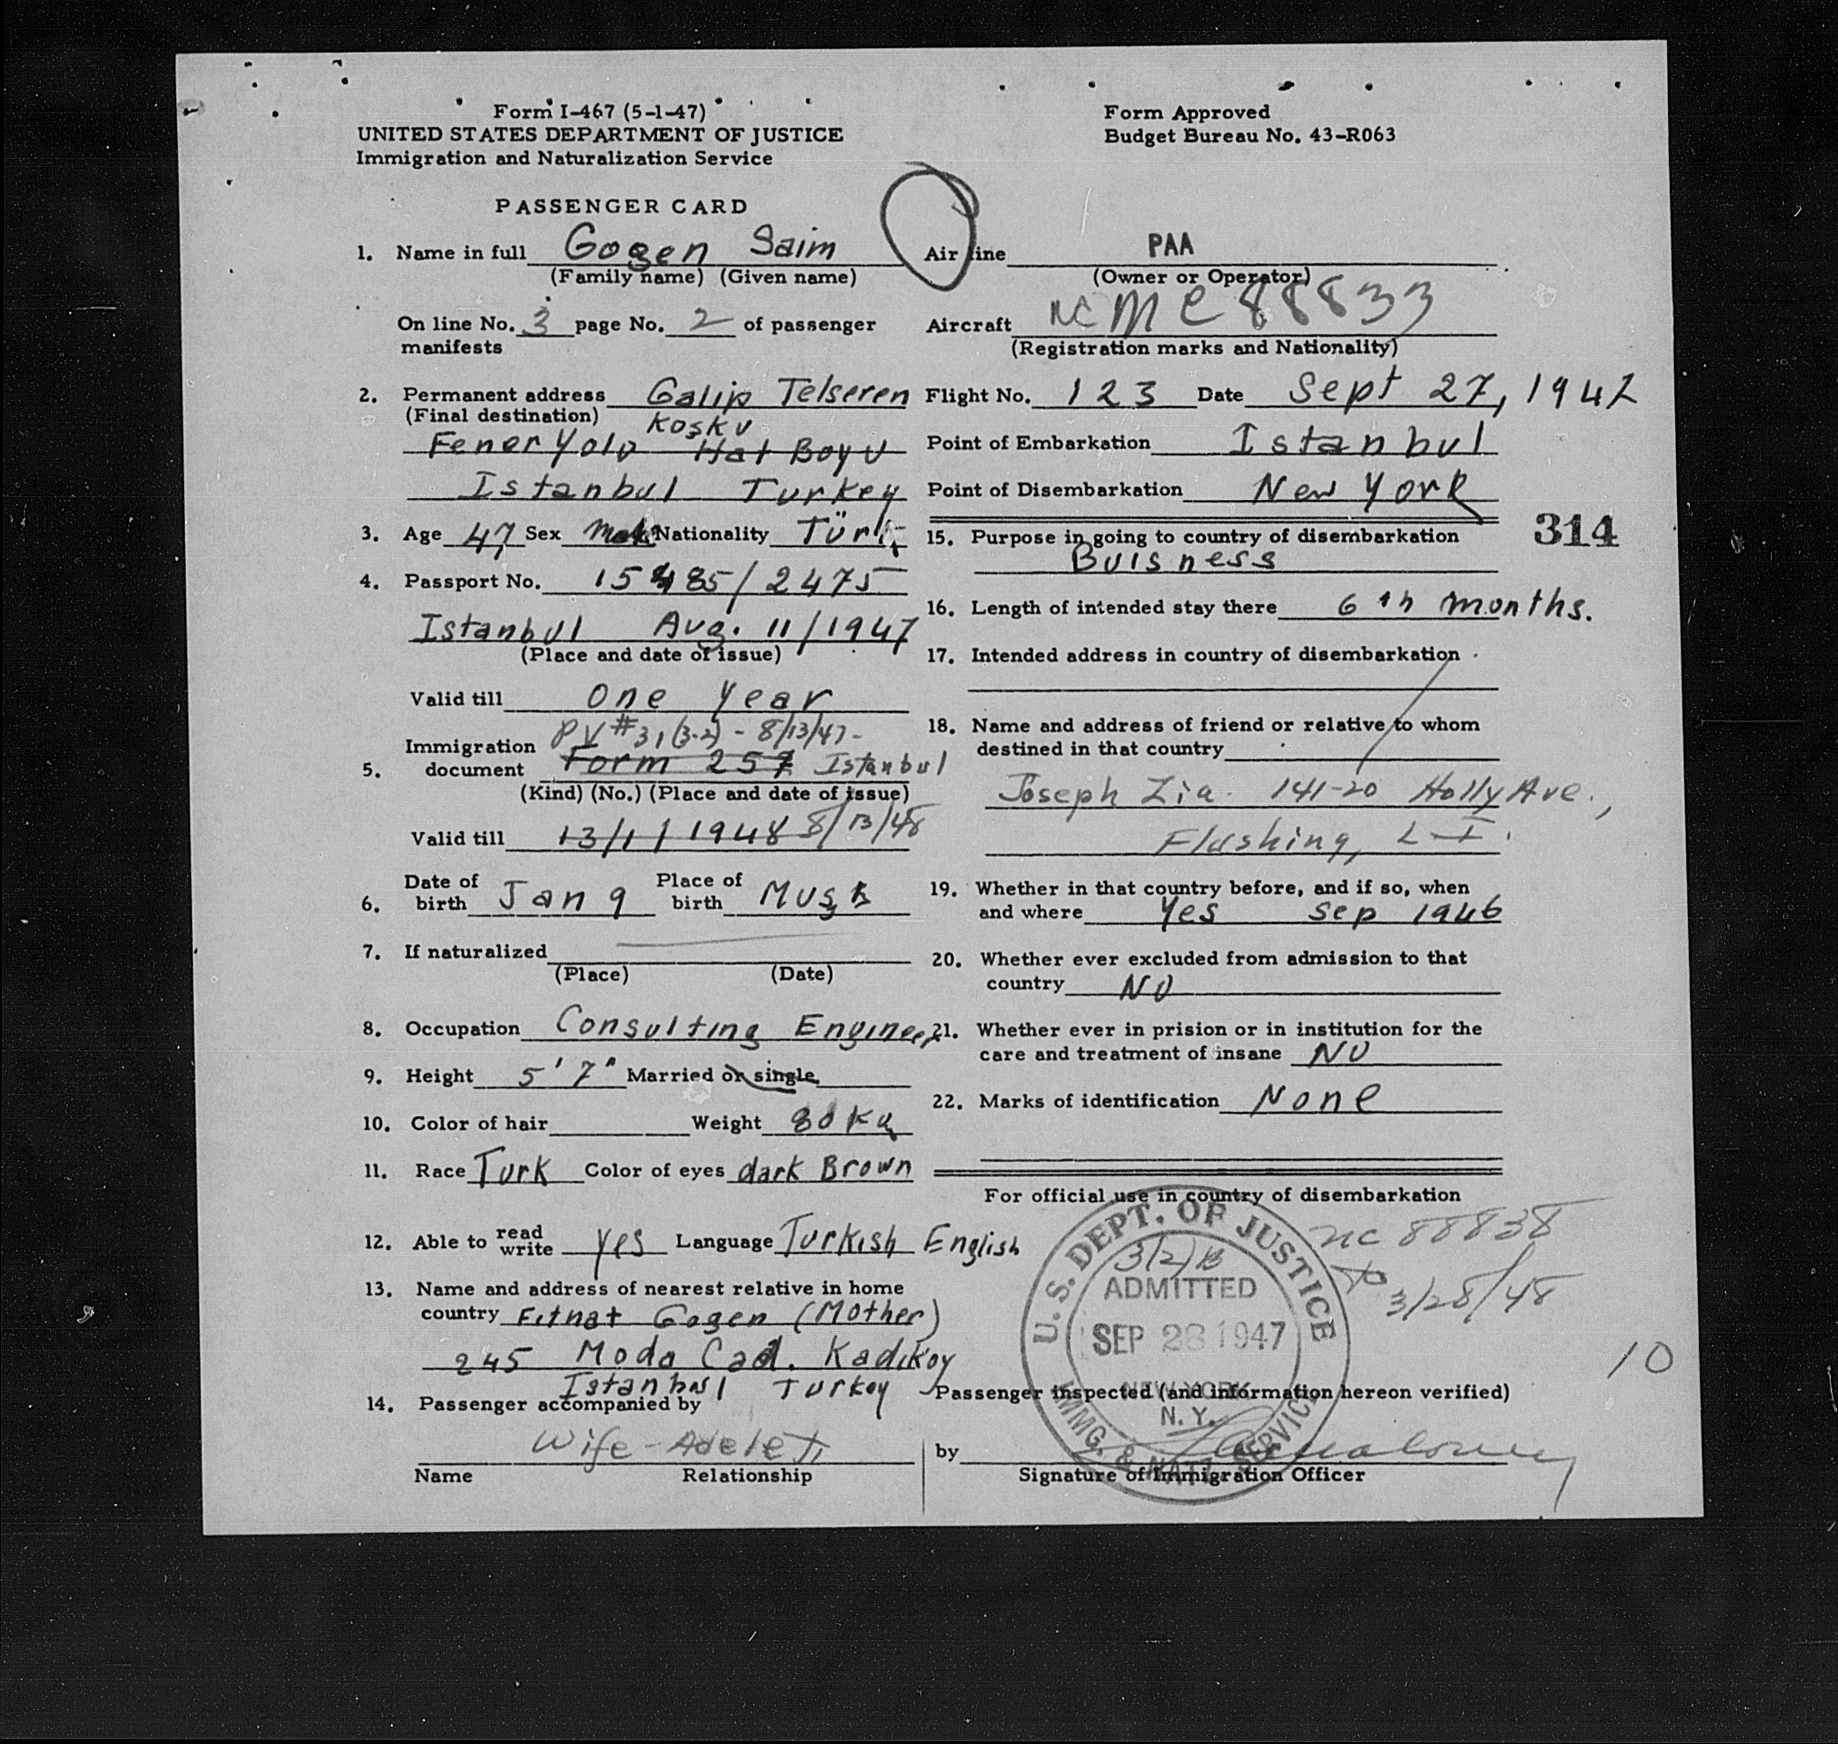 Form I-467 (5-1-47)
UNITED STATES DEPARTMENT OF JUSTICE
Immigration and Naturalization Service
Form Approved
Budget Bureau No. 43-R063
PASSENGER CARD
1. Name in full Gogen Saim
(Family name) (Given name)
On line No. 3 page No. 2 of passenger
manifests
2. Permanent address Galip Telseren
(Final destination) Koşku
Feneryolu Hat Boyu
Istanbul Turkey
3. Age 47 Sex Male Nationality Türk
4. Passport No. 15485/2475
Istanbul Aug. 11/1947
(Place and date of issue)
Valid till One Year
PV #31(3-2) - 8/13/47-
Immigration
5. document Form 257 Istanbul
(Kind) (No.) (Place and date of issue)
Valid till 13/1/1948 8/13/48
6. Date of birth Jan 9 Place of birth
7. If naturalized
(Place) (Date)
8. Occupation Consulting Engineer
9. Height 5'7" Married or single
10. Color of hair Weight 80 Kg
11. Race Turk Color of eyes dark Brown
12. Able to read write yes Language Turkish English
13. Name and address of nearest relative in home
country Fitnat Gogen (Mother)
245 Moda Cad. Kadıkoy
Istanbul Turkey
14. Passenger accompanied by
Wife-
Name Relationship
Air line PAA
(Owner or Operator)
Aircraft NC 88833
(Registration marks and Nationality)
Flight No. 123 Date Sept 27, 1947
Point of Embarkation Istanbul
Point of Disembarkation New York
314
15. Purpose in going to country of disembarkation
Buisness
16. Length of intended stay there 6 th months.
17. Intended address in country of disembarkation
18. Name and address of friend or relative to whom
destined in that country
Joseph Zia 141-20 Holly Ave.,
Flushing, L-I.
19. Whether in that country before, and if so, when
and where Yes Sep 1946
20. Whether ever excluded from admission to that
country NO
21. Whether ever in prision or in institution for the
care and treatment of insane NO
22. Marks of identification None
For official use in country of disembarkation
U. S. DEPT. OF JUSTICE
IMMG. & NATZ. SERVICE
3/2/B
ADMITTED
SEP 28 1947
NEW YORK
N. Y.
nc 88838
to 3/28/48
10
Passenger inspected (and information hereon verified)
by
Signature of Immigration Officer